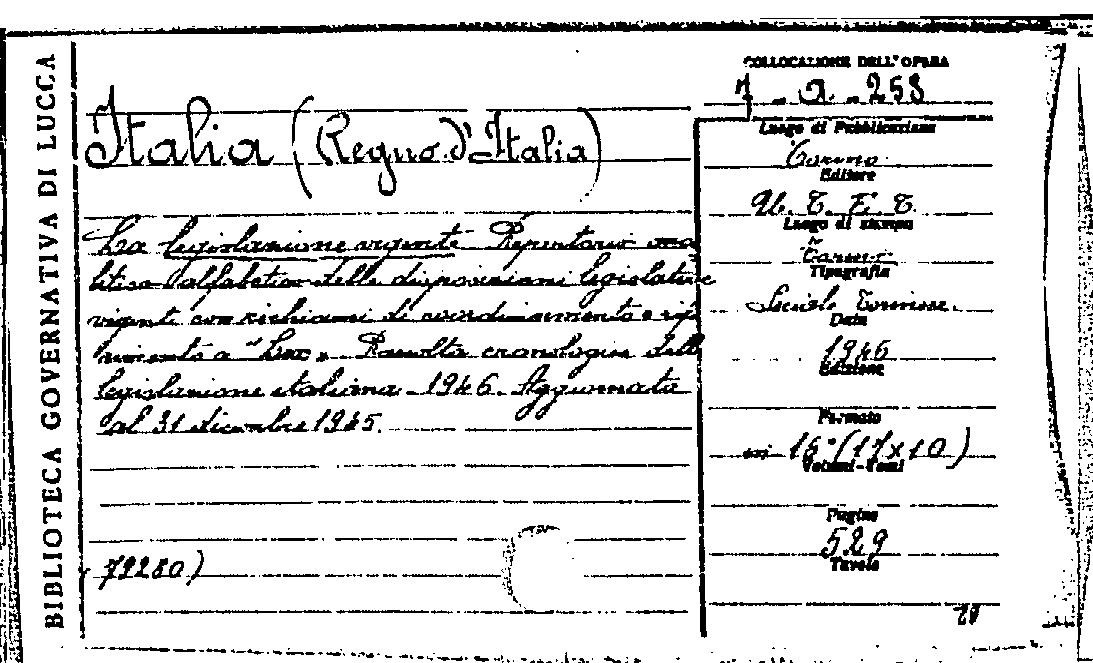 BIBLIOTECA GOVERNATIVA DI LUCCA
Italia (Regno d'Italia)
La legislazione vigente Repertorio ana
litico alfabetico delle disposizioni legislative
vigenti con richiami di coordinamento e rife
rimento a "Lex". Raccolta cronologica della
legislazione italiana 1946. Aggiornata
al 31 dicembre 1945.
79280)
COLLOCAZIONE DELL'OPERA
7 - a - 258
Luogo di Pubblicazione
Torino
Editore
U. T. E. T.
Luogo di stampa
Torino
Tipografia
Sociale Torinese.
Data
1946
Edizione
Formato
in 16° (17x10)
Volumi-Tomi
Pagine
529
Tavole